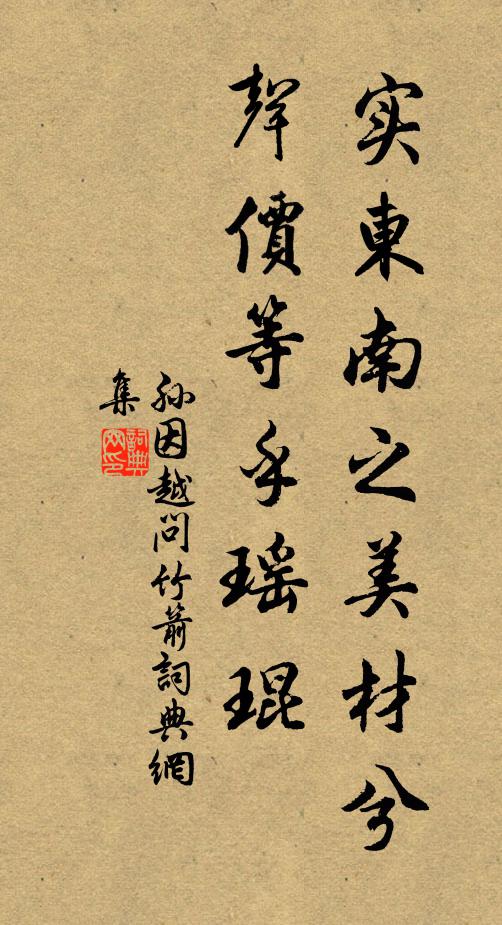 实東南之美材兮
聲價等乎瑶琨
孙因越問竹箭詞典網
集
詞典
网印